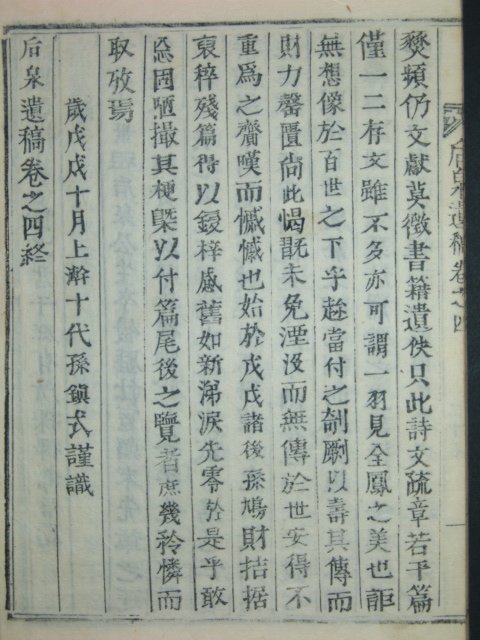 燹頻仍文獻莫徵書籍遺佚只此詩文疏章若干篇
僅一二存文雖不多亦可謂一羽見全鳳之美也詎
無想像於百世之下乎趂當付之剞劂以壽其傳而
財力罄匱尙此愒翫未免湮沒而無傳於世安得不
重爲之齎嘆而慽慽也始於戊戌諸後孫鳩財拮据
裒稡殘篇得以鋟梓感舊如新涕淚先零於是乎敢
忘固陋撮其梗槩以付篇尾後之覽者庶幾矜憐而
取攷焉
歲戊戌十月上澣十代孫鎭式謹識
后泉遺稿卷之四終
后泉遺稿卷之四